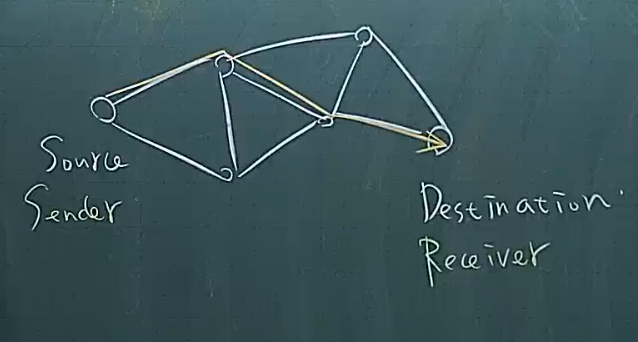 Source
Sender
Destination.
Receiver